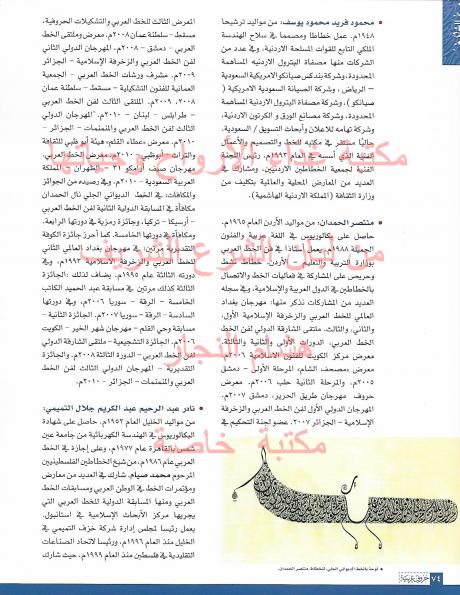 • محمود فريد محمود يوسف: من مواليد ترشيحا
١٩٤٨م. عمل خطاطا ومصمما في سلاح الهندسة
الملكي التابع للقوات المسلحة الاردنية، وفي عدد من
الشركات منها مصفاة البترول الاردنية المساهمة
المحدودة، وشركة بندكس صيانكو الامريكية السعودية
– الرياض، وشركة الصيانة السعودية الامريكية (
صيانكو)، وشركة مصفاة البترول الاردنية المساهمة
المحدودة، وشركة مصانع الورق و الكرتون الاردنية،
وشركة تهامه للاعلان وأبحاث التسويق / السعودية.
الفنية الذي أسسه في العام ١٩٩٣م. رئيس اللجنة
الفنية لجمعية الخطاطين الاردنيين. ومشارك في
العديد من المعارض المحلية والعالمية بتكليف من
وزارة الثقافة (المملكة الاردنية الهاشمية).
• منتصر الحمدان: من مواليد الأردن العام ١٩٦٥م.
حاصل على بكالوريوس في اللغة عربية والفنون
الجميلة ١٩٨٨م. يعمل أستاذاً في فن الخط العربي
بوزارة التربية والتعليم – الأردن. خطاط نشط
وحريص على المشاركة في فعاليات الخط والاتصال
بالخطاطين في الدول العربية والاسلامية، وفي سجله
العديد من المشاركات نذكر منها: مهرجان بغداد
العالمي للخط العربي والزخرفة الاسلامية الأول،
والثاني، والثالث. ملتقى الشارقة الدولي لفن الخط
العربي، الدورات الأولى والثانية والثالثة.
معرض مركز الكويت للفنون الاسلامية ٢٠٠٦م.
معرض «مصحف الشام»، المرحلة الأولى – دمشق
٢٠٠٥م، والمرحلة الثانية حلب ٢٠٠٦م. معرض
حروف مهرجان طريق الحرير، دمشق ٢٠٠٧م.
المهرجان الدولي الأول لفن الخط العربي والزخرفة
الإسلامية – الجزائر ٢٠٠٧. عضو لجنة التحكيم في
المعرض الثالث للخط العربي والتشكيلات الحروفية،
مسقط – سلطنة عمان ٢٠٠٨م. معرض وملتقى الخط
العربي – دمشق – ٢٠٠٨م. المهرجان الدولي الثاني
لفن الخط العربي والزخرفة الإسلامية – الجزائر
٢٠٠٩م. مشرف ورشات الخط العربي – الجمعية
العمانية للفنون التشكيلية – مسقط – سلطنة عمان
٢٠٠٨، ٢٠٠٩م. الملتقى الثالث لفن الخط العربي
– طرابلس – لبنان – ٢٠١٠م. المهرجان الدولي
الثالث لفن الخط العربي والمنمنمات – الجزائر –
٢٠١٠م. معرض عطاء القلم، هيئة أبو ظبي للثقافة
مهرجان صيف أرامكو ٣١ – الظهران – المملكة
العربية السعودية – ٢٠١٠م. وفي رصيده من الجوائز
والمكافآت: في الخط الديواني الجلي نال الحمدان
مكافأة في المسابقة الدولية الثانية لفن الخط العربي
– أرسيكا – تركيا، وجائزة رمزية في دورتها الرابعة،
ومكافأة في دورتها الخامسة. كما أحرز جائزة الكوفة
التقديرية مرتين: في مهرجان بغداد العالمي الثاني
للخط العربي والزخرفة الاسلامية ١٩٩٣م، وفي
دورته الثالثة عام ١٩٩٥م. يضاف لذلك :الجائزة
الثالثة كذلك مرتين في مسابقة عبد الحميد الكاتب
الخامسة – الرقة – سوريا ٢٠٠٦م، وفي دورتها
السادسة – الرقة – سوريا ٢٠٠٧م. الجائزة الثانية –
مسابقة وحي القلم – مهرجان شهر الخير – الكويت
٢٠٠٦م. الجائزة التشجيعية – ملتقى الشارقة الدولي
لفن الخط العربي – الدورة الثالثة ٢٠٠٨م. والجائزة
التقديرية – المهرجان الدولي الثالث لفن الخط
العربي والمنمنمات – الجزائر – ٢٠١٠م.
• نادر عبد الرحيم عبد الكريم جلال التميمي:
من مواليد الخليل العام ١٩٥٢م. حاصل على شهادة
البكالوريوس في الهندسة الكهربائية من جامعة عين
شمس بالقاهرة عام ١٩٧٧م، وعلى إجازة في الخط
العربي عام ١٩٨٦م، من شيخ الخطاطين الفلسطينيين
المرحوم محمد صيام. شارك في العديد من معارض
ومؤتمرات الخط في الوطن العربي ومسابقات الخط
العربي ومنها المسابقة الدولية للخط العربي التي
يجريها مركز الأبحاث الإسلامية في استانبول.
يعمل رئيسا لمجلس إدارة شركة خزف التميمي في
الخليل منذ العام ١٩٩٦م، ورئيسا لاتحاد الصناعات
التقليدية في فلسطين منذ العام ١٩٩٩م، حيث شارك
• لوحة بالخط الديواني الجلي، للخطاط: منتصر الحمدان.
٧٤
حروف عربية
هشام النجار
مكتبة خاصة